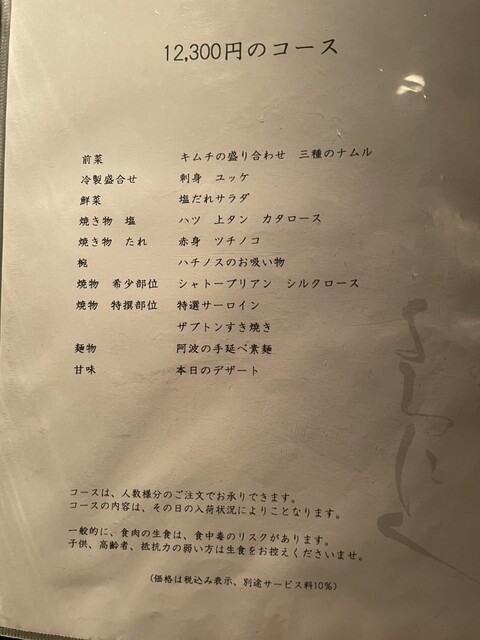 12,300円のコース
前菜 キムチの盛り合わせ 三種のナムル
冷製盛合せ 刺身 ユッケ
鮮菜 塩だれサラダ
焼き物 塩 ハツ 上タン カタロース
焼き物 たれ 赤身 ツチノコ
椀 ハチノスのお吸い物
焼物 希少部位 シャトーブリアン シルクロース
焼物 特撰部位 特選サーロイン
ザブトンすき焼き
麺物 阿波の手延べ素麺
甘味 本日のデザート
よろにく
コースは、人数様分のご注文でお承りできます。
コースの内容は、その日の入荷状況によりことなります。
一般的に、食肉の生食は、食中毒のリスクがあります。
子供、高齢者、抵抗力の弱い方は生食をお控えくださいませ。
(価格は税込み表示、別途サービス料10%)